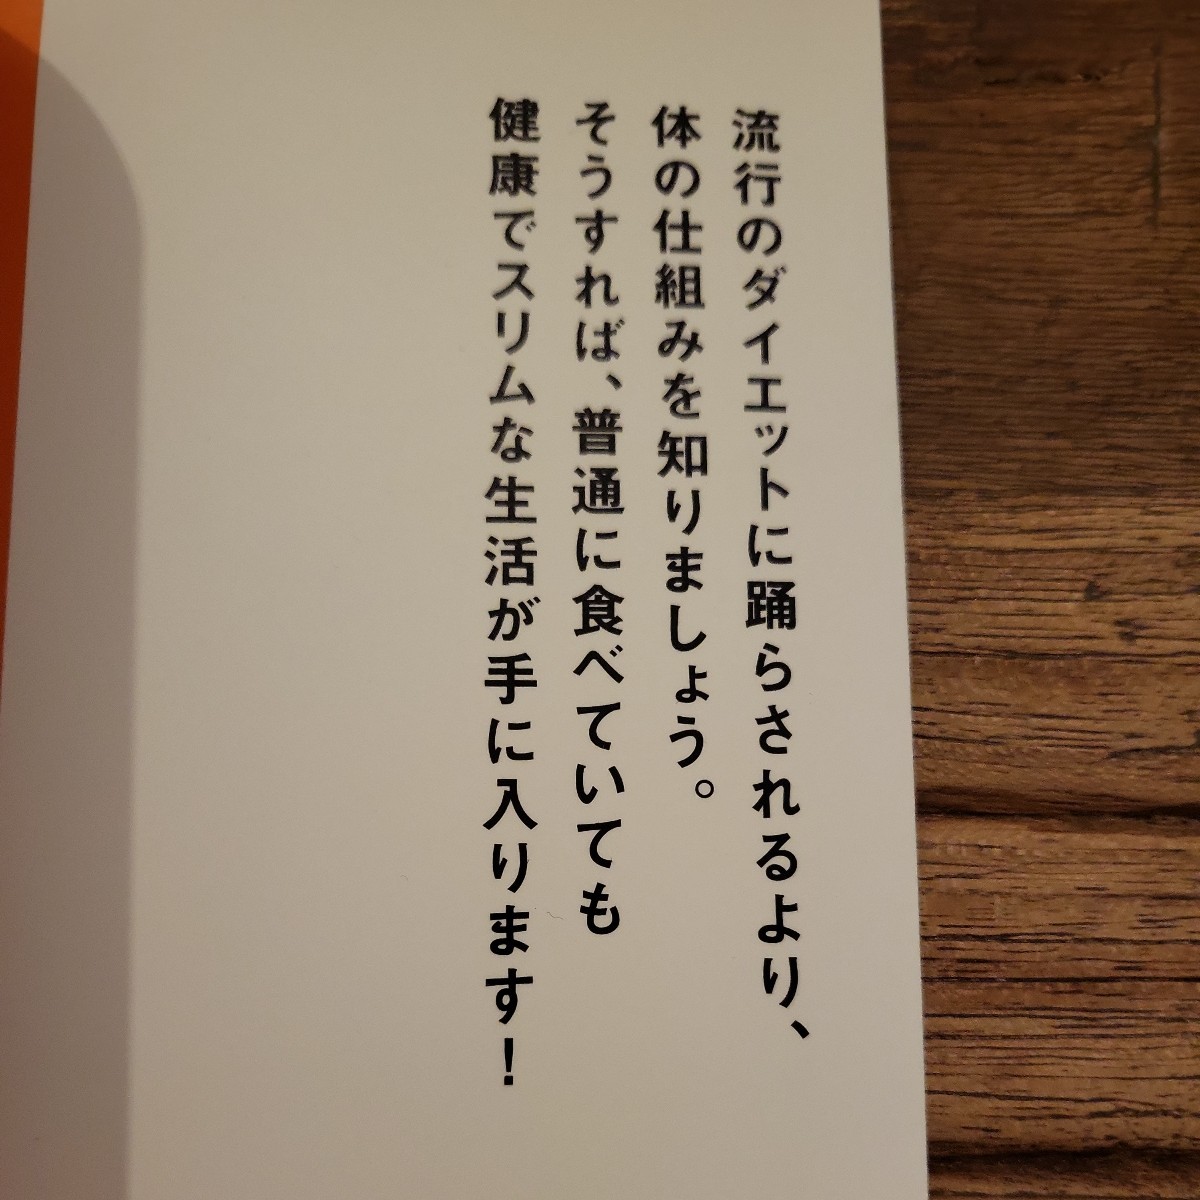 流行のダイエットに踊らされるより、
体の仕組みを知りましょう。
そうすれば、普通に食べていても
健康でスリムな生活が手に入ります！